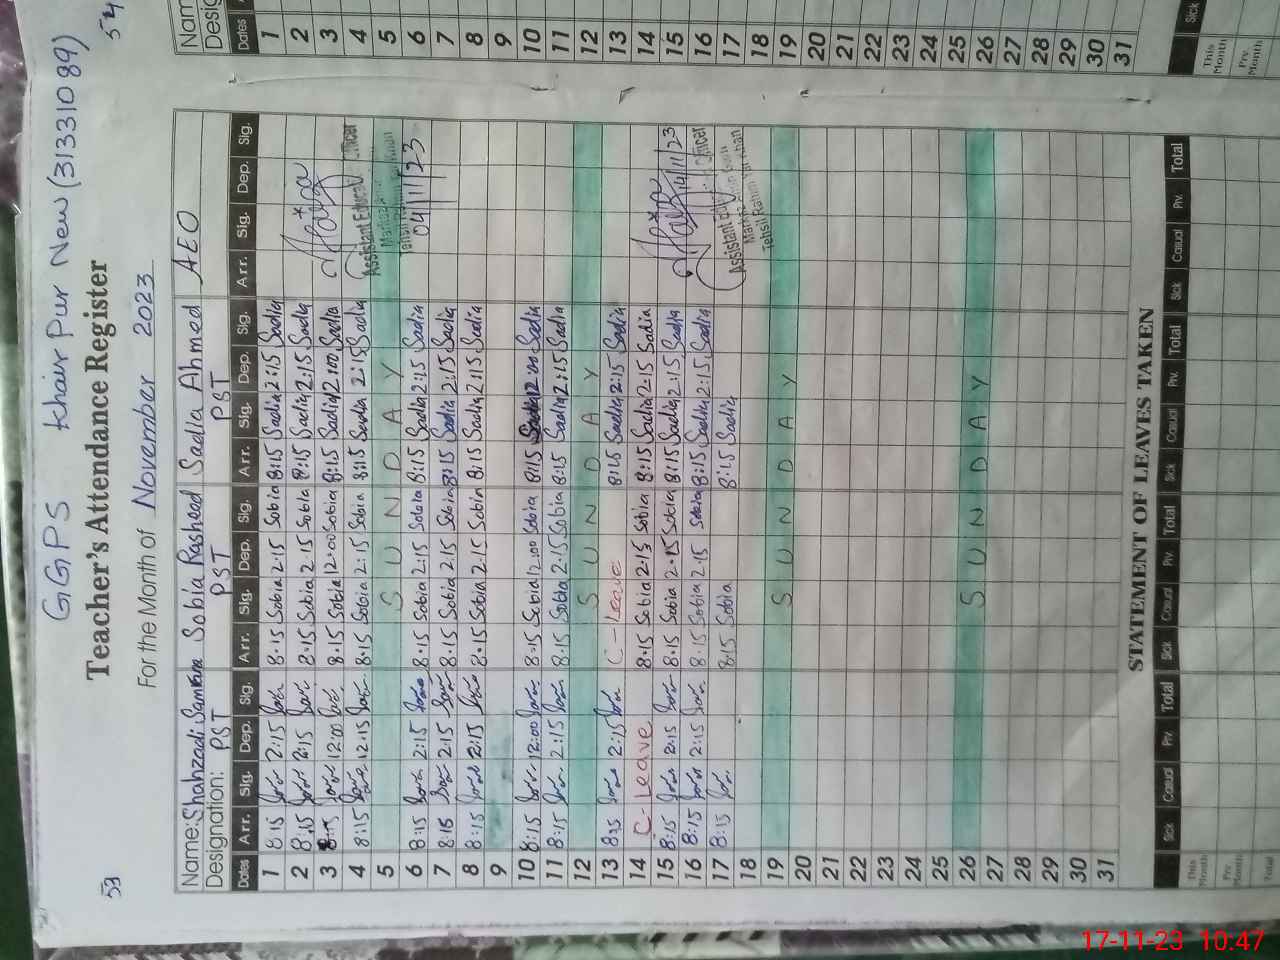 GGPS Khair Pur New (31331089)
59
54
Teacher's Attendance Register
For the Month of November 2023
Name: Shahzadi Samrina Sobia Rasheed Sadia Ahmed AEO
Designation: PST PST PST
Dates Arr. Sig. Dep. Sig. Arr. Sig. Dep. Sig. Arr. Sig. Dep. Sig. Arr. Sig. Dep. Sig.
1 8:15 2:15 8:15 Sobia 2:15 Sobia 8:15 Sadia 2:15 Sadia
2 8:15 2:15 8:15 Sobia 2:15 Sobia 8:15 Sadia 2:15 Sadia
3 8:15 12:00 8:15 Sobia 12:00 Sobia 8:15 Sadia 12:00 Sadia
4 8:15 12:15 8:15 Sobia 2:15 Sobia 8:15 Sadia 2:15 Sadia Assistant Officer
5 SUNDAY Markaz
Tehsil
6 8:15 2:15 8:15 Sobia 2:15 Sobia 8:15 Sadia 2:15 Sadia 04/11/23
7 8:15 2:15 8:15 Sobia 2:15 Sobia 8:15 Sadia 2:15 Sadia
8 8:15 2:15 8:15 Sobia 2:15 Sobia 8:15 Sadia 2:15 Sadia
9
10 8:15 12:00 8:15 Sobia 12:00 Sobia 8:15 Sadia 12:00 Sadia
11 8:15 2:15 8:15 Sobia 2:15 Sobia 8:15 Sadia 2:15 Sadia
12 SUNDAY
13 8:15 2:15 C-Leave 8:15 Sadia 2:15 Sadia
14 C-Leave 8:15 Sobia 2:15 Sobia 8:15 Sadia 2:15 Sadia
15 8:15 2:15 8:15 Sobia 2:15 Sobia 8:15 Sadia 2:15 Sadia 14/11/23
16 8:15 2:15 8:15 Sobia 2:15 Sobia 8:15 Sadia 2:15 Sadia
17 8:15 8:15 Sobia 8:15 Sadia Assistant Officer
Markaz
18 Tehsil Rahim Yar Khan
19 SUNDAY
20
21
22
23
24
25
26 SUNDAY
27
28
29
30
31
STATEMENT OF LEAVES TAKEN
Sick Casual Prv. Total Sick Casual Prv. Total Sick Casual Prv. Total Sick Casual Prv. Total
This Month
Prv. Month
Total
Nam
Desig
Dates
1
2
3
4
5
6
7
8
9
10
11
12
13
14
15
16
17
18
19
20
21
22
23
24
25
26
27
28
29
30
31
Sick
This Month
Prv. Month
17-11-23 10:47